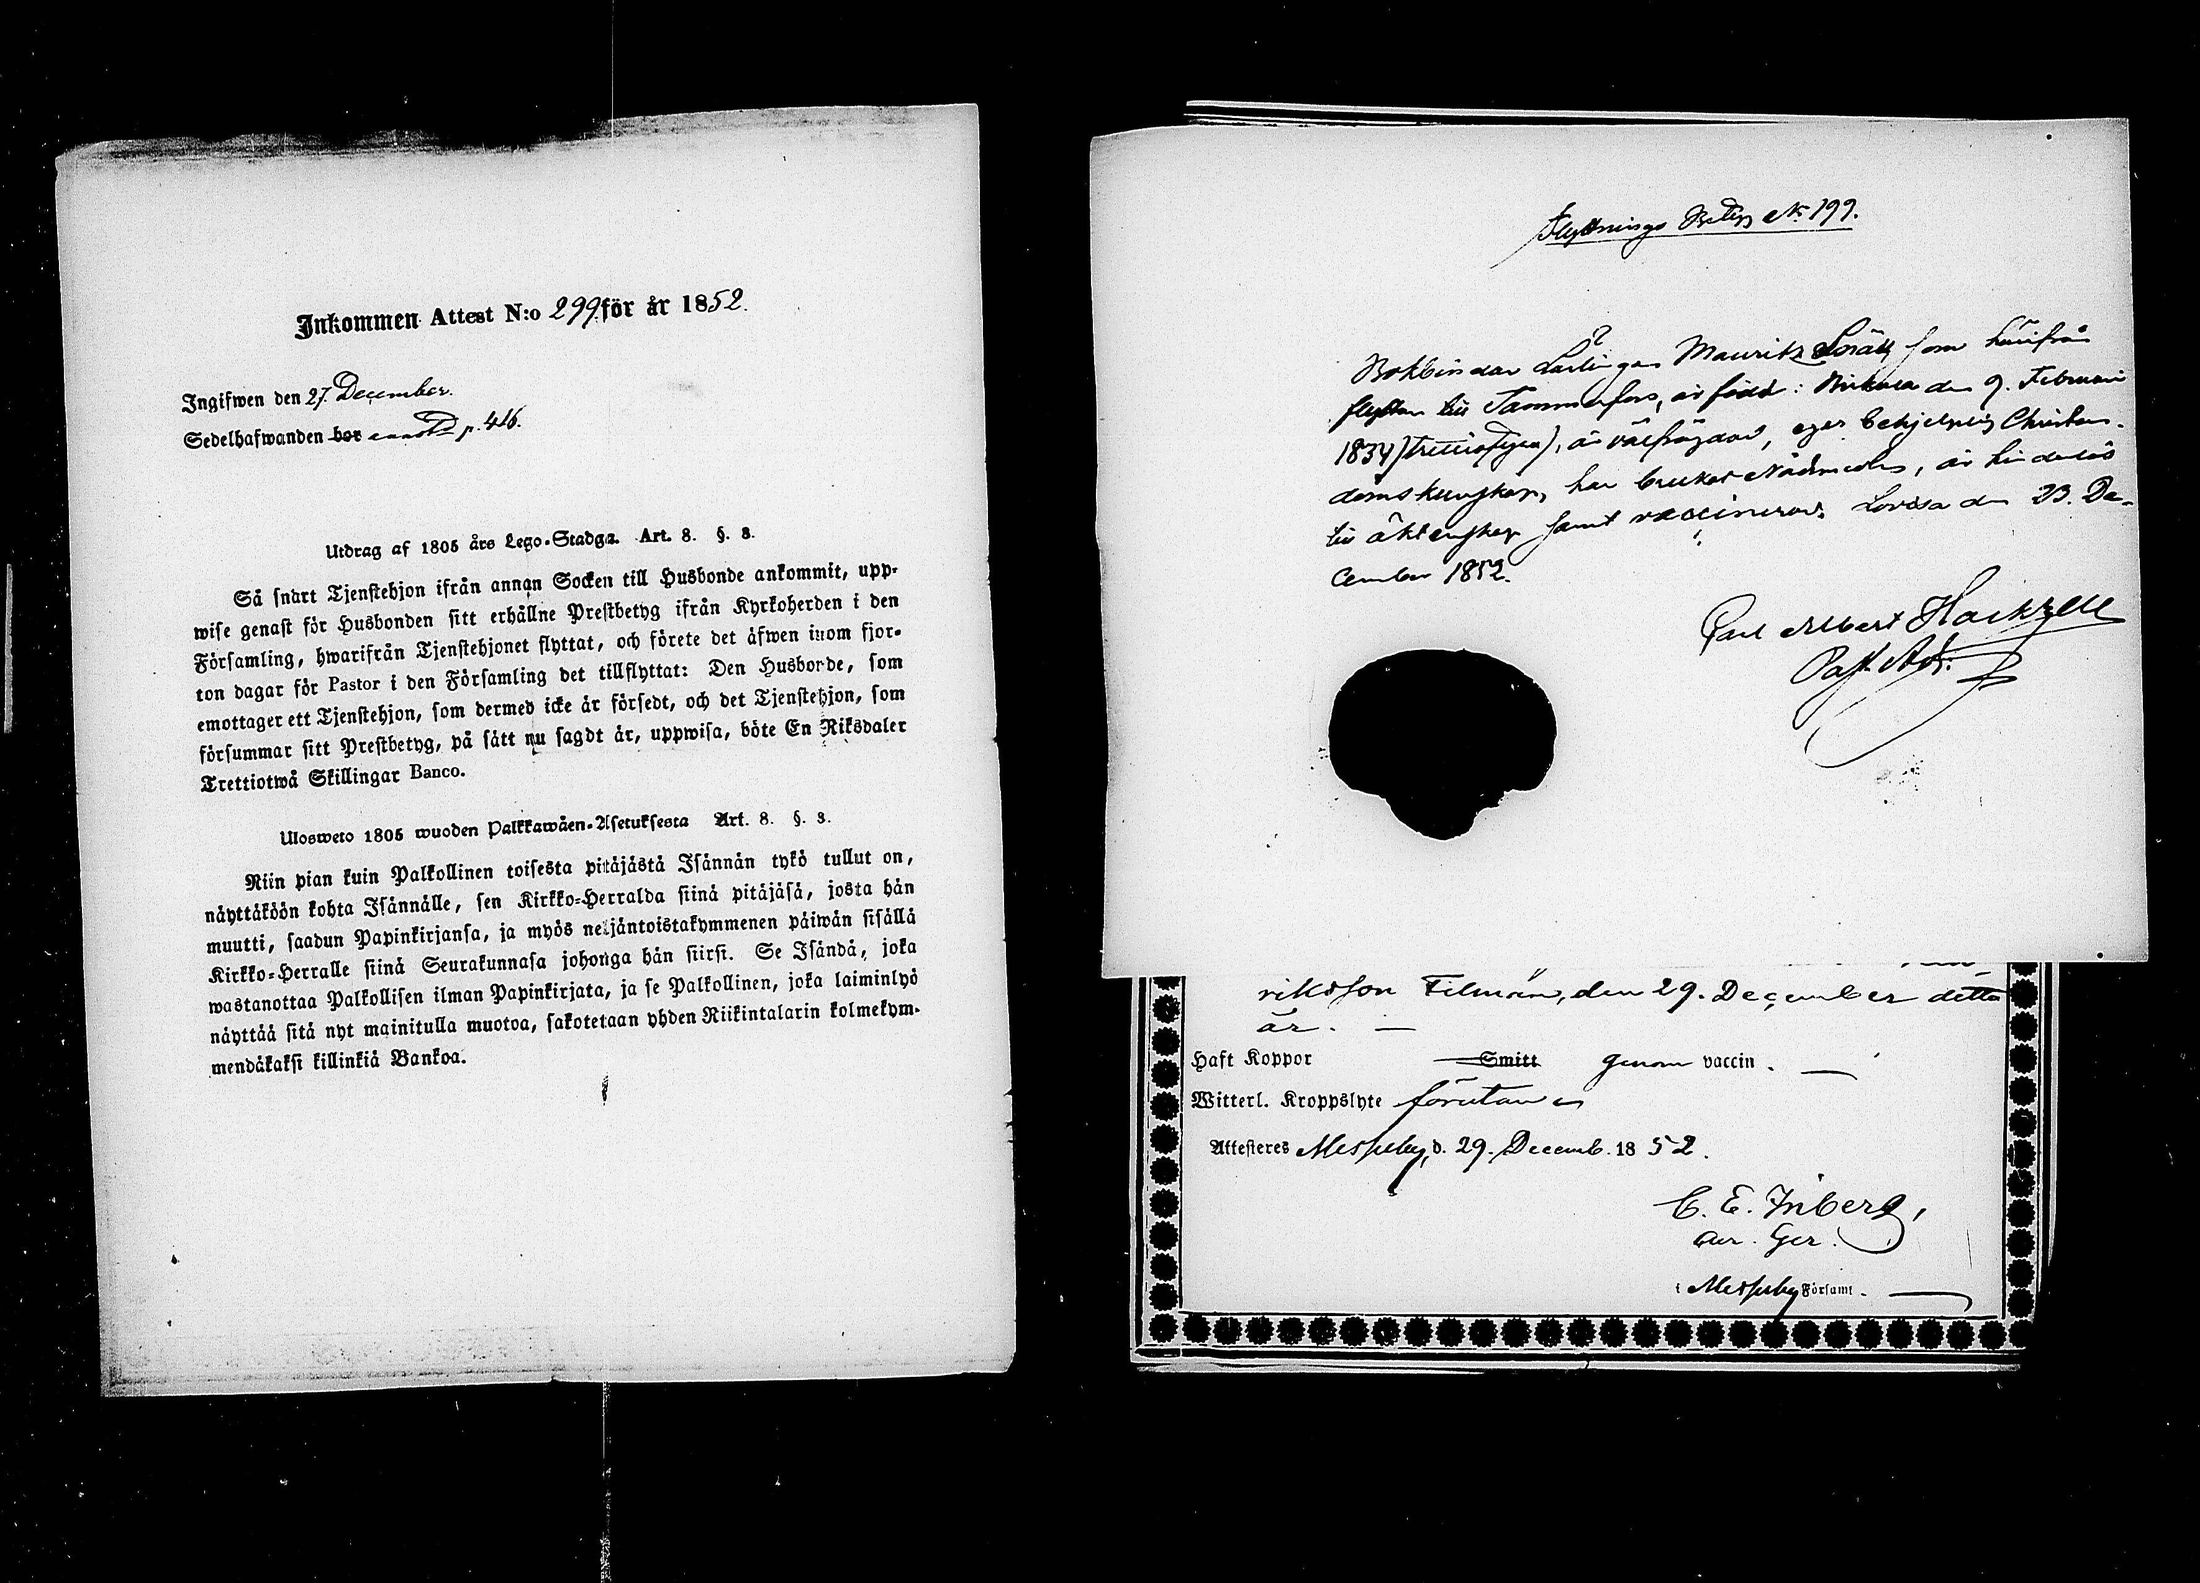 Inkommen Attest N:o 299 för år 1852.
Ingifwen den 27 December.
Sedelhafwanden bor annot p. 416.
Utdrag af 1805 års Lego-Stadga. Art. 8. §. 3.
Så snart Tjenstehjon ifrån annan Socken till Husbonde ankommit, upp-
wise genast för Husbonden sitt erhållne Prestbetyg ifrån Kyrkoherden i den
Församling, hwarifrån Tjenstehjonet flyttat, och förete det äfwen inom fjor-
ton dagar för Pastor i den Församling det tillflyttat: Den Husbonde, som
emottager ett Tjenstehjon, som dermed icke är försedt, och det Tjenstehjon, som
försummar sitt Prestbetyg, på sätt nu sagdt är, uppwisa, böte En Riksdaler
Trettiotwå Skillingar Banco.
Ulosweto 1805 wuoden Palkkawäen-Asetuksesta Art. 8. §. 3.
Niin pian kuin Palkollinen toisesta pitäjästä Isännän tykö tullut on,
näyttäköön kohta Isännälle, sen Kirkko-Herralda siinä pitäjäsä, josta hän
muutti, saadun Papinkirjansa, ja myös neljäntoistakymmenen päiwän sisällä
Kirkko-Herralle siinä Seurakunnasa johonga hän siirsi. Se Isändä, joka
wastanottaa Palkollisen ilman Papinkirjata, ja se Palkollinen, joka laiminlyö
näyttää sitä nyt mainitulla muotoa, sakotetaan yhden Riikintalarin kolmekym-
mendäkaksi killinkiä Bankoa.
Flyttnings Betyg No 199.
Bokbindar Lärlingen Mauritz som härifrån
flyttar till Tammerfors, är född i den 9. Februari
1834 (trettiofyra), är välfrägdad, eger behjelplig Christen-
domskunskap, har brukat Nådmedlen, är hinderlös
till äktenskap samt vaccinerad. Lovisa den 23. De-
cember 1852.
Carl Albert Hackzell
Past. Adj.
rikson Filmän, den 29. December detta
år. —
Haft Koppor Smitt genom vaccin. —
Witterl. Kroppslyte förutan
Attesteres Messuby, d. 29. Decemb. 1852.
C. E. Inberg,
i Messuby Församl. —